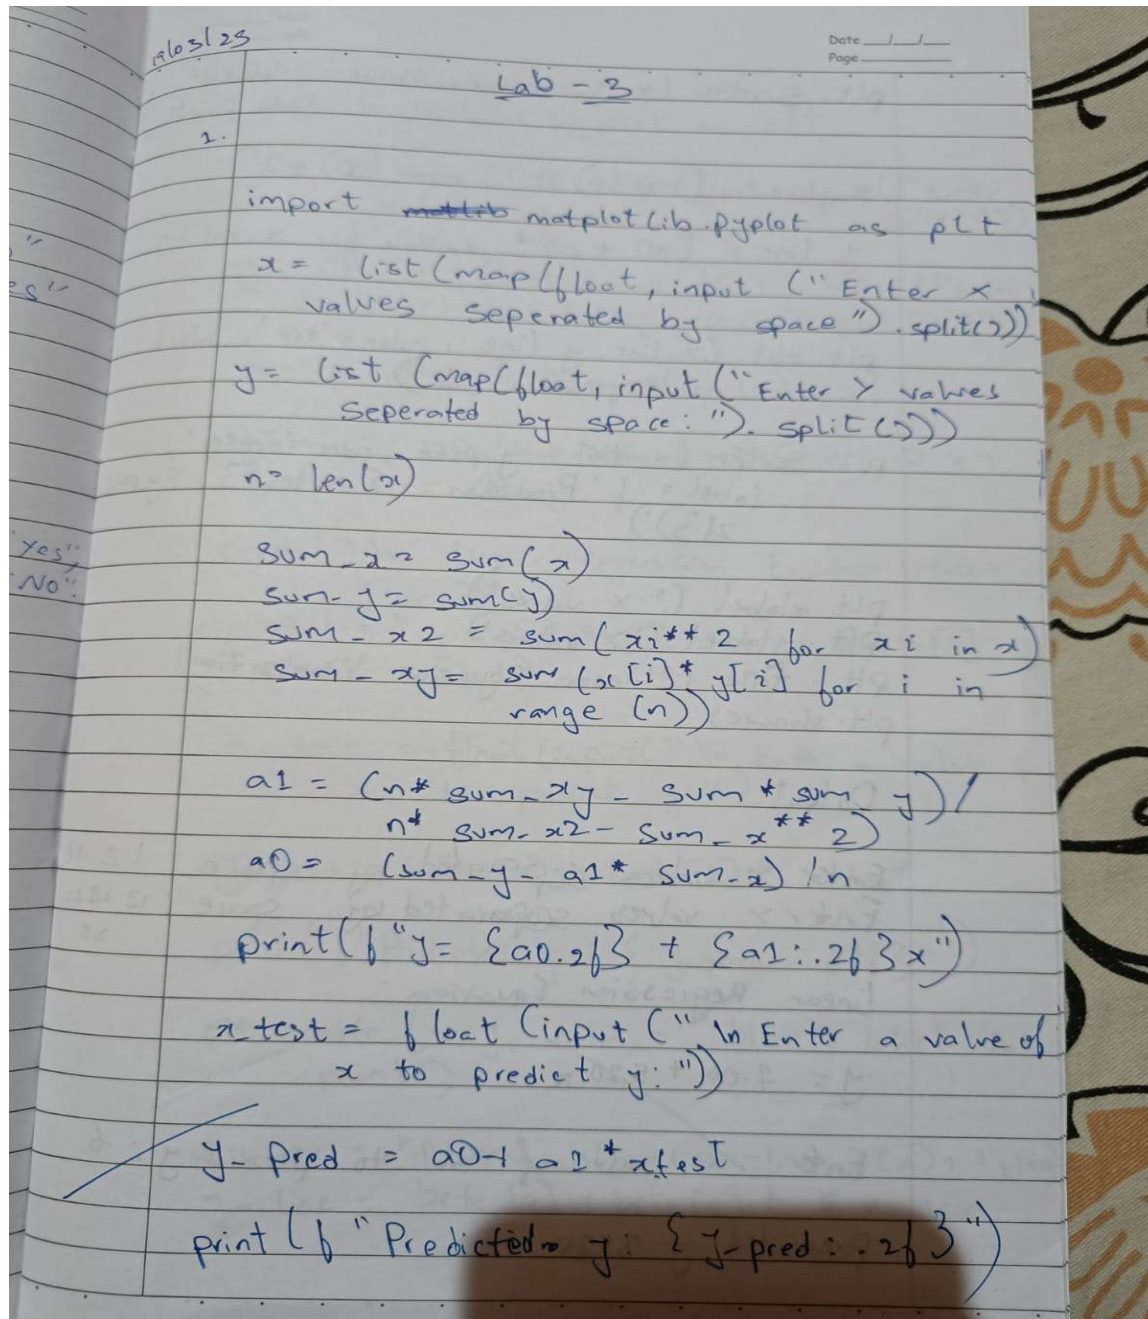 19/03/25
Date __/__/__
Page
Lab - 3
1.
import matlib matplotlib.pyplot as plt
x = list (map(float, input ("Enter x
values seperated by space").split()))
y = list (map(float, input ("Enter Y values
seperated by space: "). split()))
n = len(x)
sum_x = sum(x)
sum_y = sum(y)
sum_x2 = sum(xi**2 for xi in x)
sum_xy = sum (x[i]* y[i] for i in
range (n))
a1 = (n* sum_xy - sum * sum y) /
n* sum_x2 - sum_x ** 2)
a0 = (sum_y - a1* sum_x) /n
print(f"y= {a0.2f} + {a1:.2f}x")
x_test = float (input (" \n Enter a value of
x to predict y: "))
y_pred = a0+ a1 *xtest
print (f "Predicted y: {y_pred: .2f}")
es"
"Yes",
"No".